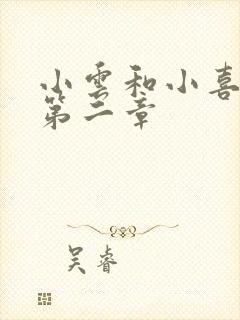 小雲和小喜
第二章
吴睿